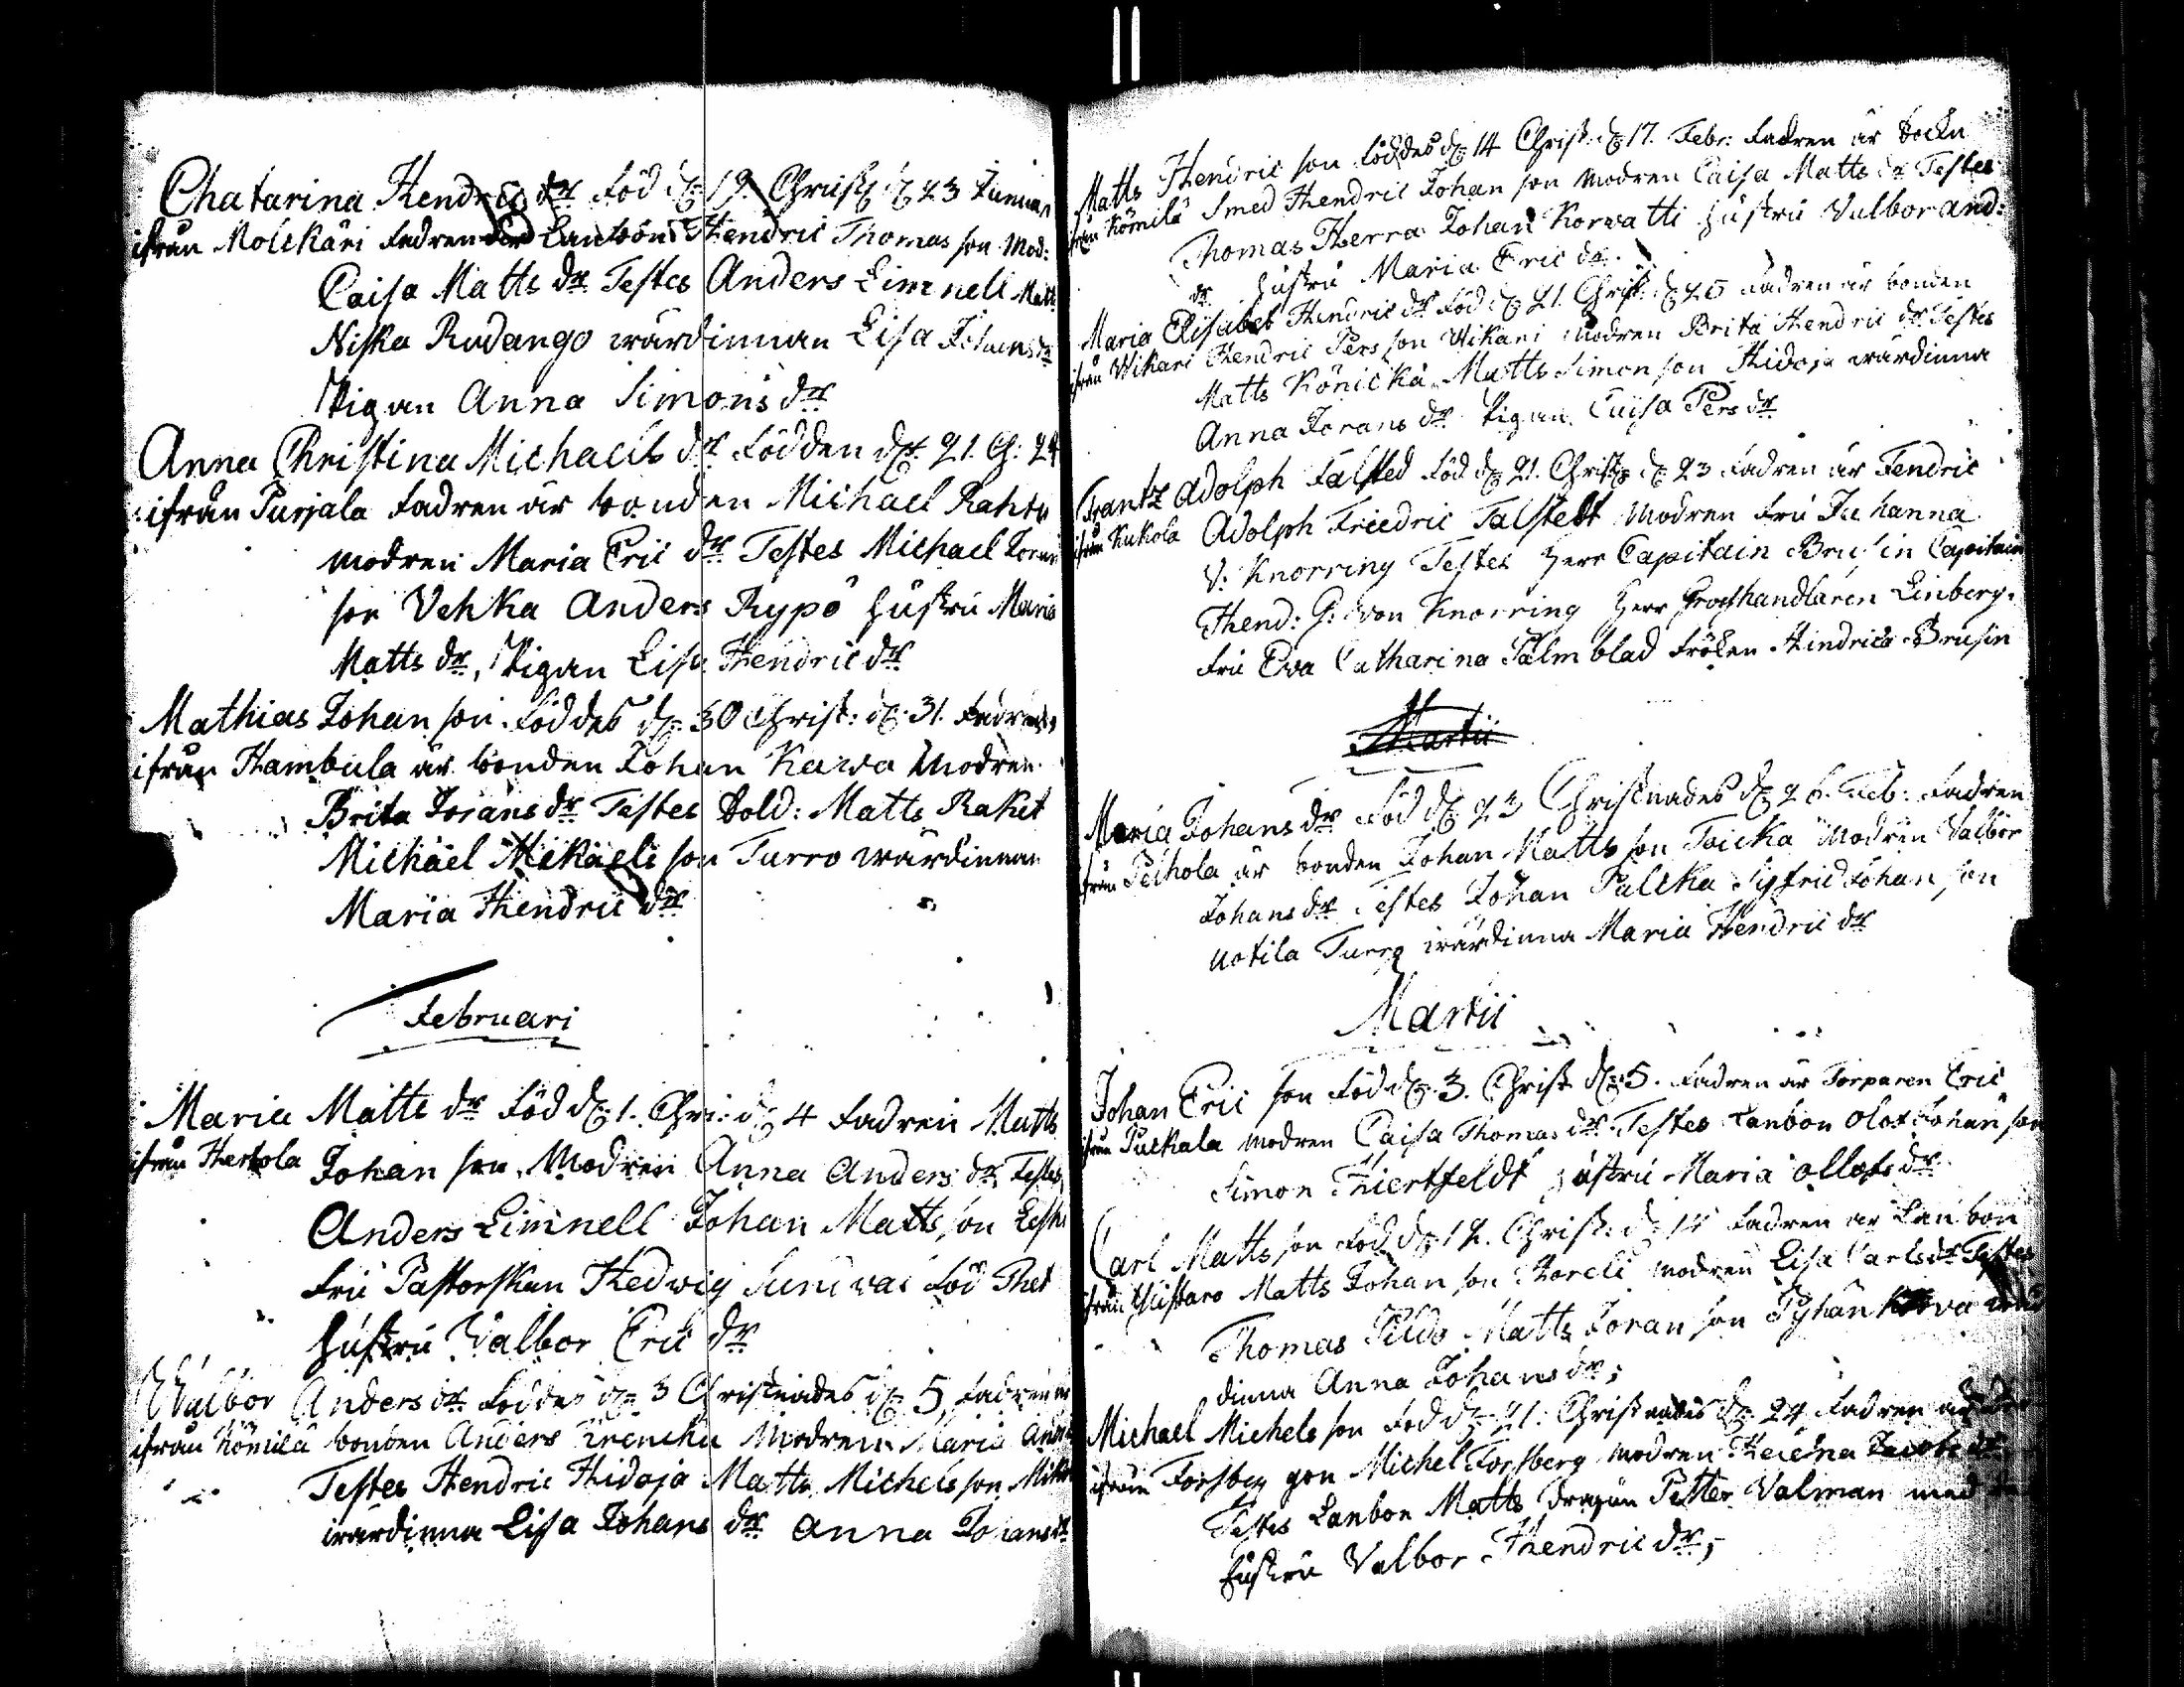 Chatarina Hendrics dr Född d: 19. Christ d: 23 Januari
ifrån Molckäri Fadren Lanbon Hendric Thomas son Mod:
Caisa Matts dr Testes Anders Limnell Matt
Niska Rudango wärdinnan Lisa Johans dr
Pigan Anna Simons dr
Anna Christina Michaels dr Födden d: 21. C: 24
ifrån Purjala Fadren är bonden Michael Rahtu
modren Maria Eric dr Testes Michael Joran
son Vehka Anders Rypö hustru Maria
Matts dr, Pigan Lisa Hendric dr
Mathias Johan son Föddes d: 30 Christ: d: 31. Fadren
ifrån Hambula är bonden Johan Kawa Modren
Brita Jorans dr Testes Sold: Matts Raket
Michael Mikaels son Turro wärdinnan
Maria Hendric dr
Februari
Maria Matts dr Föd d: 1. Chri: d: 4 Fadren Matts
ifrån Hertola Johan son Modren Anna Anders dr Testes
Anders Limnell Johan Matts son
Fru Pastorskan Hedwig född
hustru Valbor Eric dr
Walbor Anders dr Föddes d: 3 Christnades d: 5 Fadren är
ifrån Kömilä bonden Anders Modren Maria And
Testes Hendric Hidoja Matts Michels son
wärdinna Lisa Johans dr Anna Johans dr
Matts Hendric son Föddes d: 14 Christ d: 17. Febr: Fadren är
ifrån Kömilä Smed Hendric Johan son Modren Caisa Matts dr Testes
Thomas Herra Johan Korwatti hustru Valbor And:
dr hustru Maria Eric dr.
Maria Elisabet Hendric dr Föd d: 21. Christ: d: 25 Fadren är bonden
ifrån Wikari Hendric Pers son Wikari Modren Brita Hendric dr Testes
Matts Könickä Matts Simon son Hidoja wärdinna
Anna Jorans dr Pigan Caisa Pers dr
Frantz Adolph Falsted Föd d: 21. Christ d: 23 Fadren är Fendric
ifrån Kukola Adolph Friedric Falstedt Modren Fru Juhanna
V: Knorring Testes Herr Capitain Brusin Capitain
Hend: G: von Knorring Herr Groshandlaren Linberg.
Fru Eva Catharina Palmblad Fröken Hindrica Brusin
Martii
Maria Johans dr Föd d: 23 Christnades d: 26. Feb: Fadren
ifrån Peihola är bonden Johan Matts son Toicka Modren Valbor
Johans dr Testes Johan Palcka Sigfrid Johan son
Uotila Turro wärdinna Maria Hendric dr
Martii
Johan Eric son Föd d: 3. Christ d: 5. Fadren är Torparen Eric
ifrån Puckala modren Caisa Thomas dr Testes Lanbon Olof Johan son
Simon Hiertfeldt hustru Maria Ollofs dr
Carl Matts son Föd d: 12. Christ: d: 14 Fadren är Lanbon
ifrån Matts Johan son modren Lisa Carls dr Testes
Thomas Matts Joran son
dinna Anna Johans dr;
Michael Michels son Föd d: 21. Christnades d: 24 Fadren är
ifrån Forsberg Michel Forsberg modren Helena Jacobs dr
Testes Lanbon Matts dragun Petter Valman med
hustru Valbor Hendric dr;